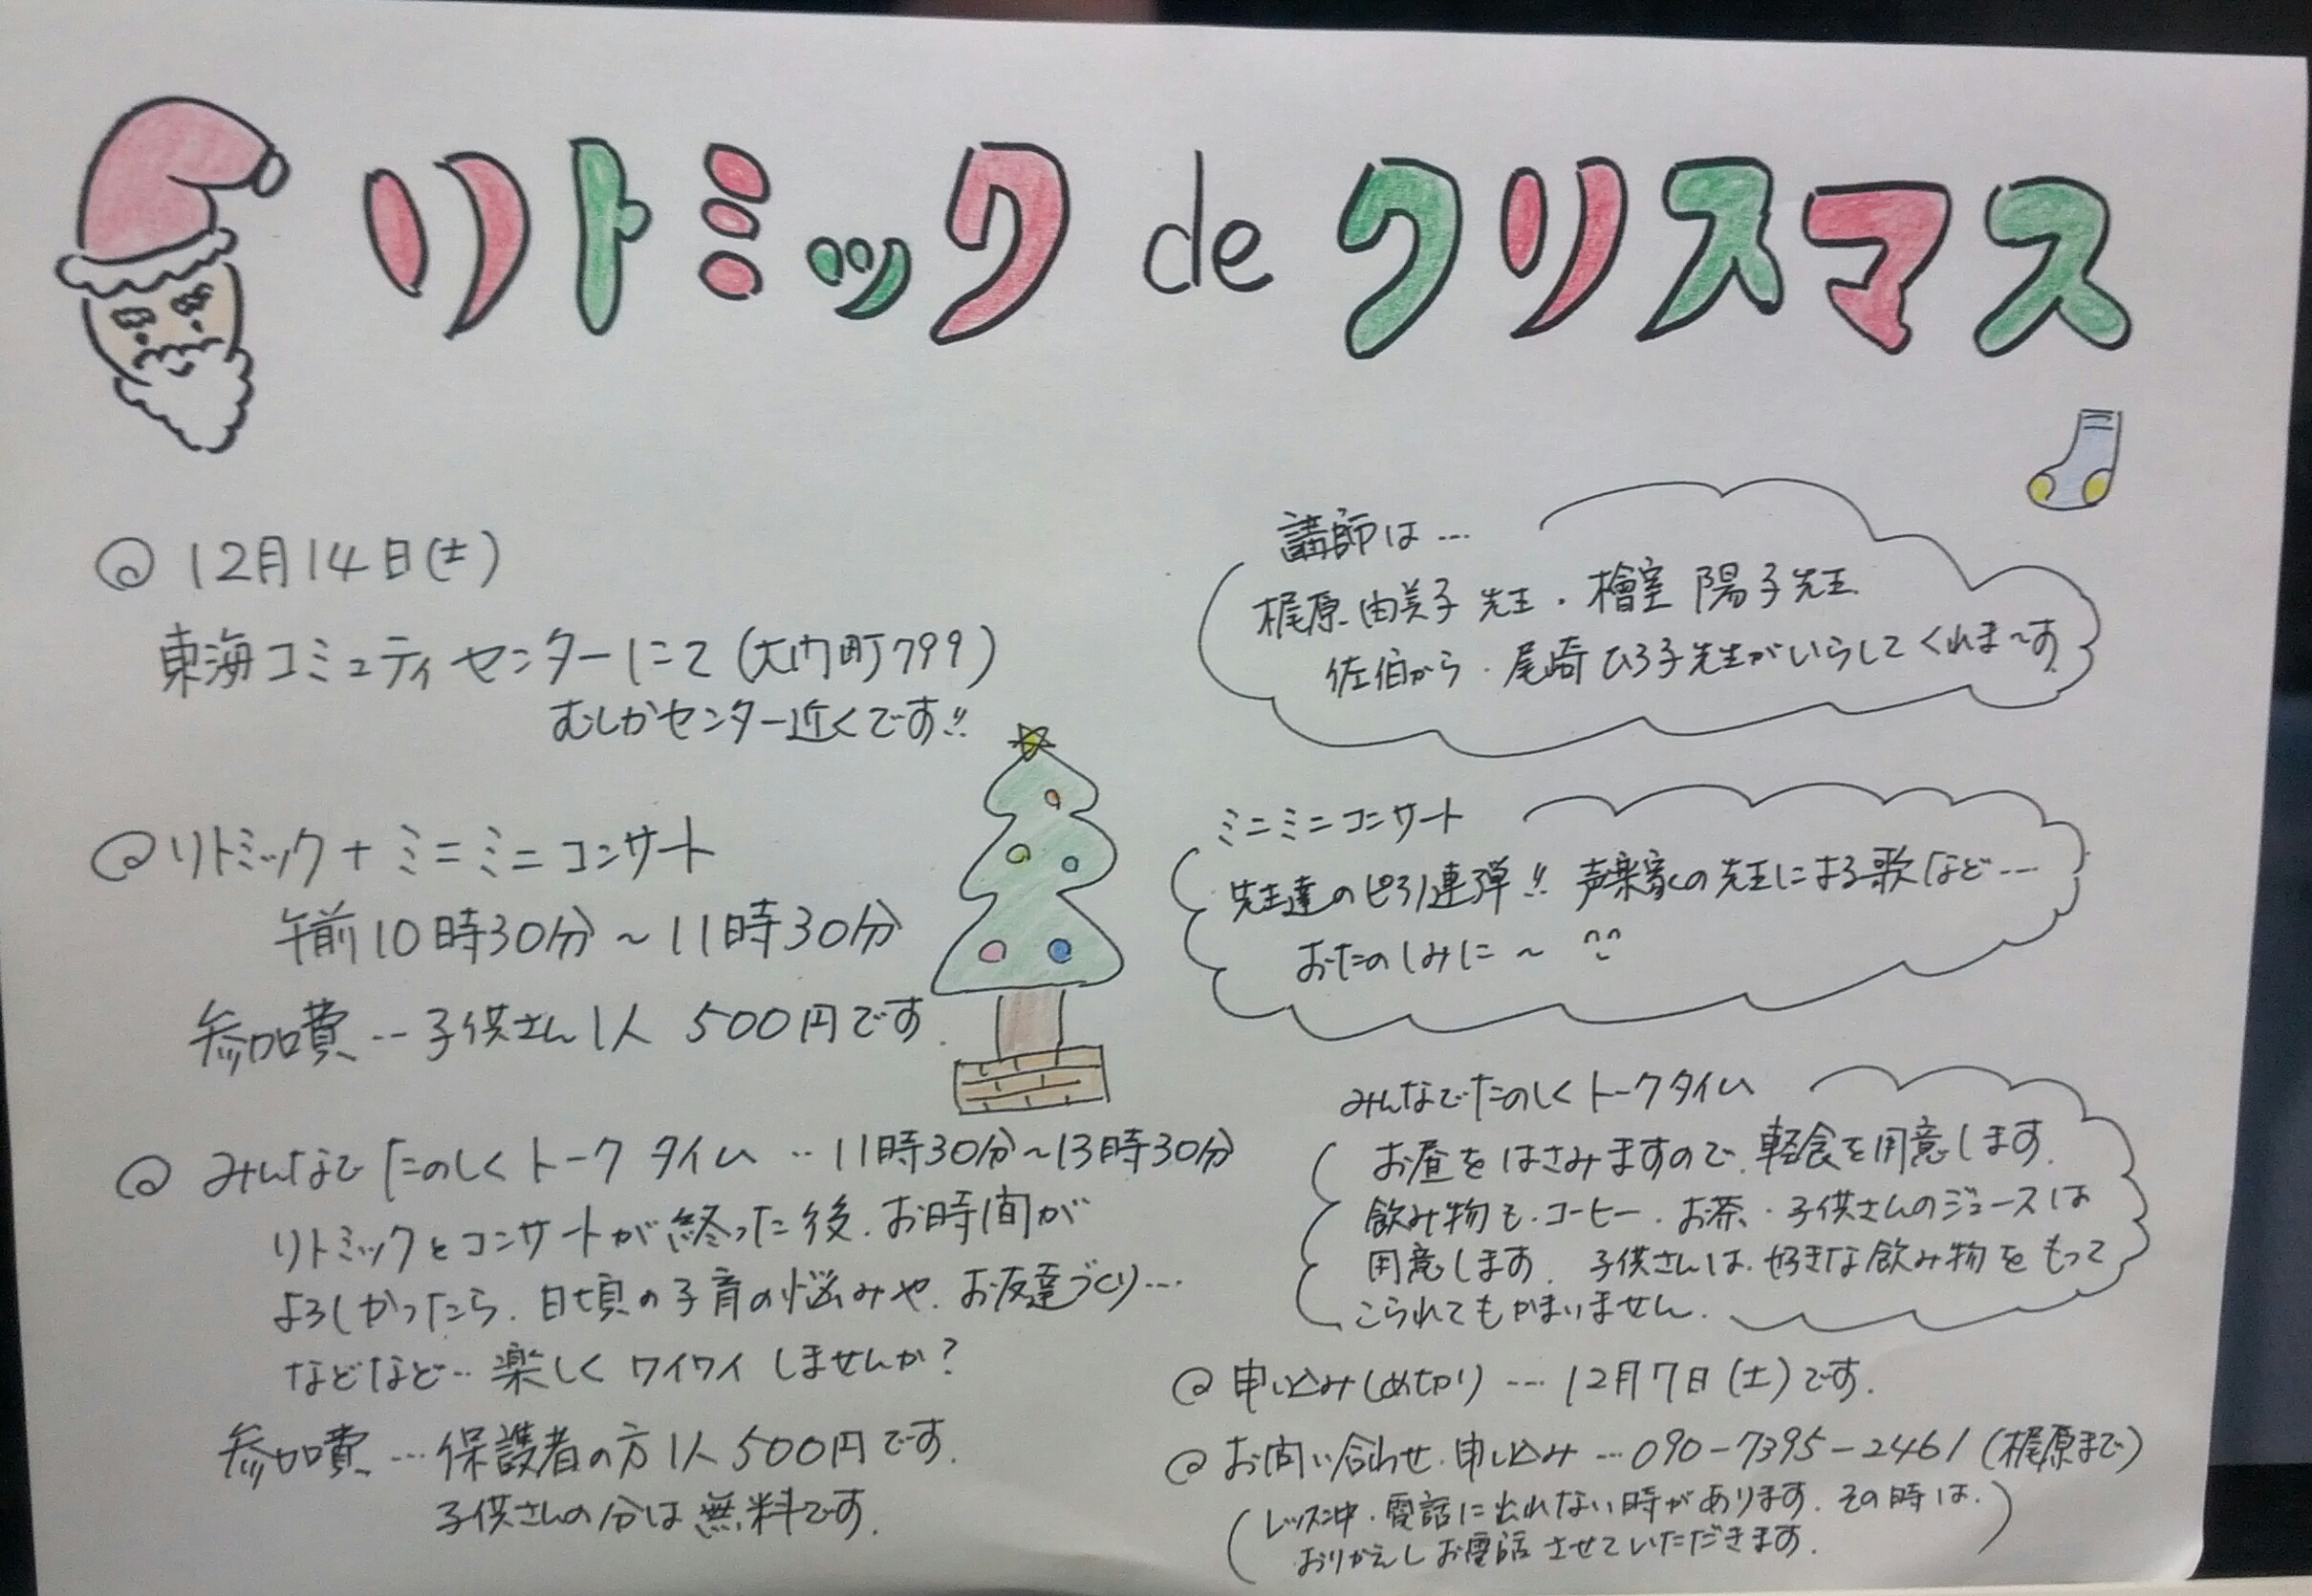 リトミック de クリスマス
@ 12月14日(土)
東海コミュティセンターにて (大内町799)
むしかセンター近くです!!
@リトミック + ミニミニコンサート
午前10時30分~11時30分
参加費…子供さん1人 500円です.
@ みんなで たのしく トーク タイム ‥ 11時30分~13時30分
リトミックとコンサートが終った後. お時間が
よろしかったら. 日頃の子育の悩みや. お友達づくり…
などなど‥ 楽しく ワイワイ しませんか?
参加費 …保護者の方1人500円です.
子供さんの分は無料です.
講師は…
梶原 由美子 先生・檜室 陽子先生
佐伯から・尾崎ひろ子先生がいらしてくれま~す
ミニミニコンサート
先生達のピアノ連弾!! 声楽家の先生による歌など…
おたのしみに~
みんなでたのしくトークタイム
お昼をはさみますので. 軽食を用意します.
飲み物も・コーヒー・お茶・子供さんのジュースは
用意します. 子供さんは. 好きな飲み物をもって
こられてもかまいません.
@ 申し込みしめきり … 12月7日(土)です.
@ お問い合わせ・申し込み …090-7395-2461(梶原まで)
(レッスン中・電話に出れない時があります. その時は.
おりかえしお電話させていただきます.)